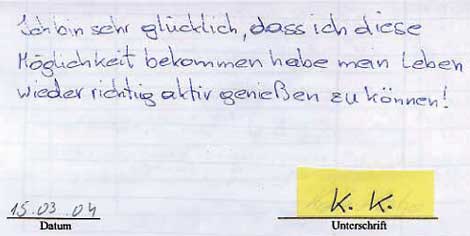 Ich bin sehr glücklich, dass ich diese
Möglichkeit bekommen habe mein Leben
wieder richtig aktiv genießen zu können!
15.03.04
K. K.
Datum
Unterschrift